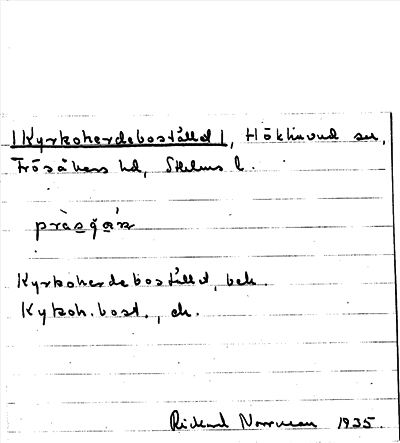 [Kyrkoherdebostället], Hökhuvud sn,
Frösåkers hd, Sthlms l.
pràsgá̀ɳ
Kyrkoherdebostället, bek.
Kyrkoh.bost., ek.
Rickard Norrman 1935.